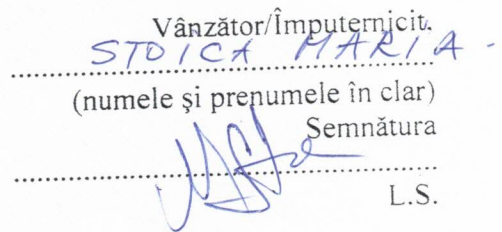 Vânzător/Împuternicit.
STOICA MARIA -
(numele şi prenumele în clar)
Semnătura
L.S.